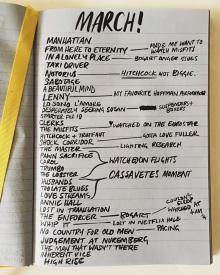 MARCH!
MANHATTAN
FROM HERE TO ETERNITY — MADE ME WANT TO WATCH MISFITS
IN A LONELY PLACE — BOGART ANGER ISSUES
TAXI DRIVER
NOTORIUS — HITCHCOCK NOT BOGGIE.
SABOTAGE
A BEAUTIFUL MIND
LENNY — MY FAVORITE HOFFMAN
DESPERATELY SEEKING SUSAN — SUSPENDERS + BOXERS
STARTER FOR 10
CLERKS
THE MISFITS WATCHED ON THE EUROSTAR
HITCHCOCK + TRUFFAUT — GOTTA LOVE FULLER
SHOCK CORRIDOR
THE MASTER — LIGHTING RESEARCH
PAWN SACRIFICE
CAROL WATCHED ON FLIGHTS
TRUMBO
THE LOBSTER
HUSBANDS CASSAVETES MOMENT
TOO LATE BLUES
LOVE STREAMS
ANNIE HALL
LOST IN TRANSLATION
THE ENFORCER — BOGART
WHIP IT — LOST IN NETFLIX HOLE
COULDN'T SLEEP WATCHED AT 4AM
NO COUNTRY FOR OLD MEN — PACING
JUDGEMENT AT NUREMBERG
THE MAN THAT WASN'T THERE
INHERENT VICE
HIGH RISE